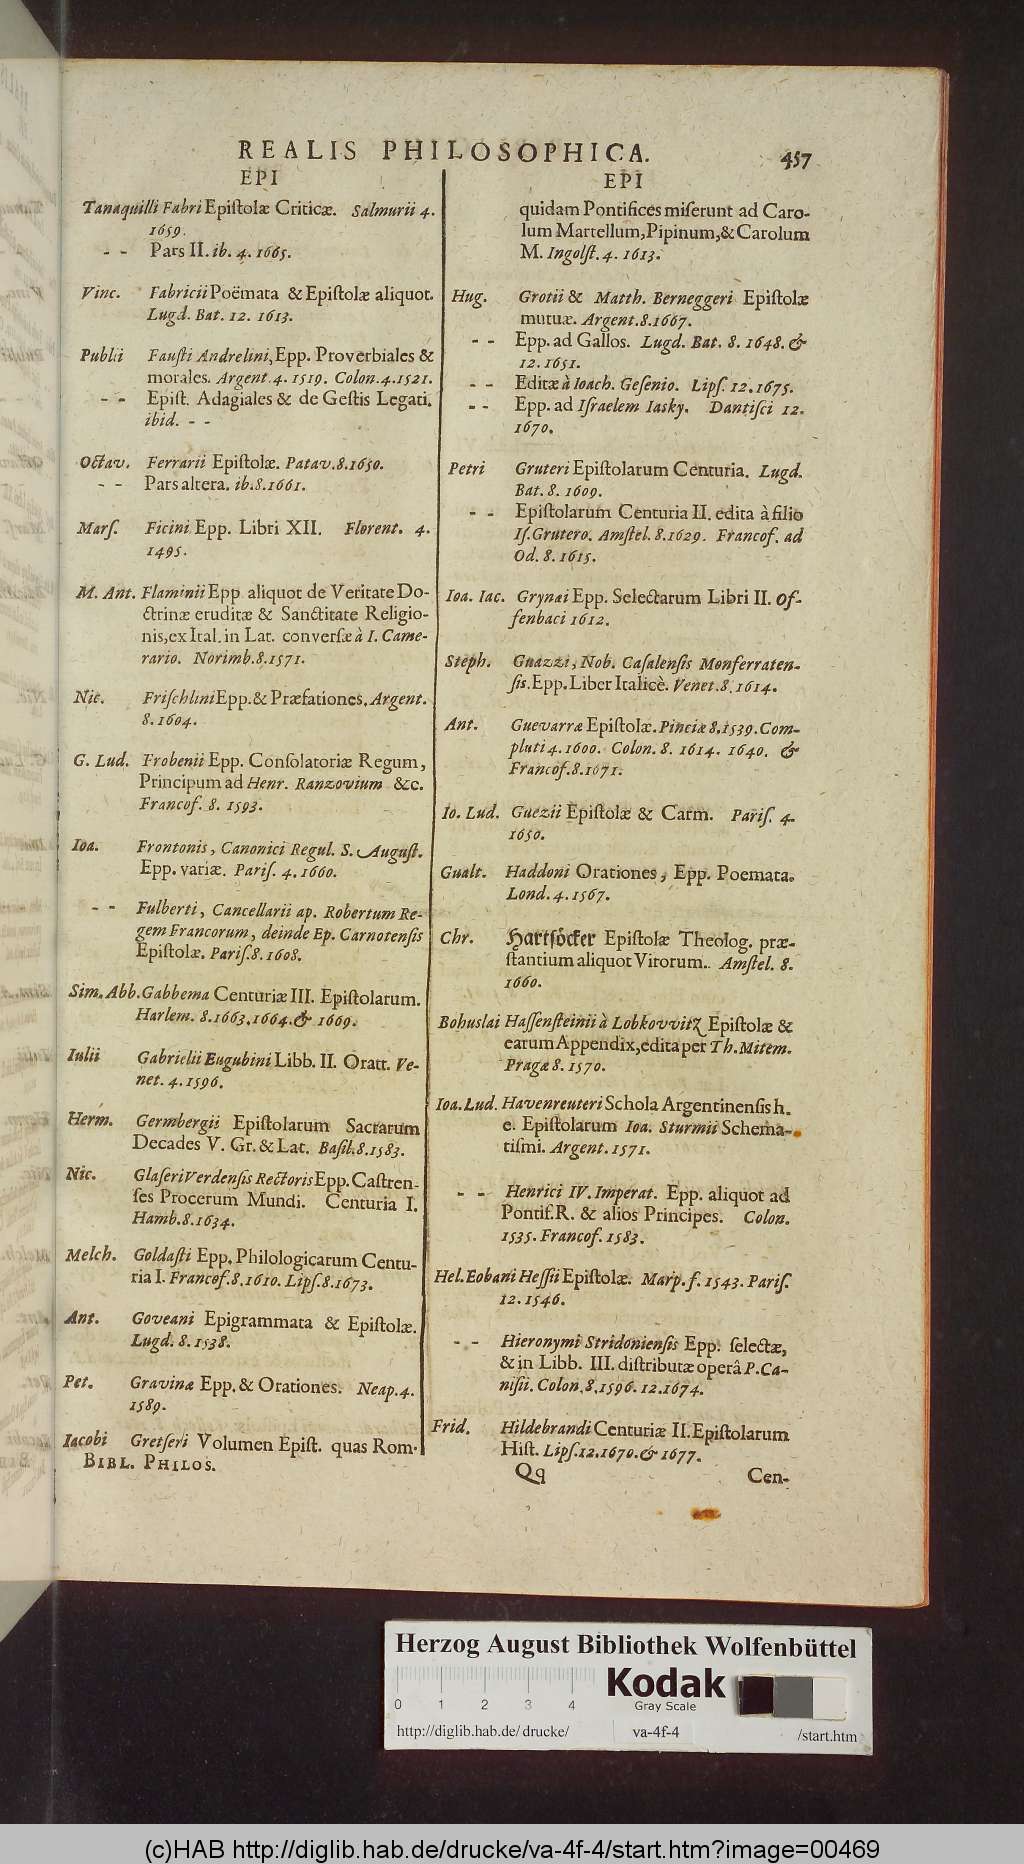 REALIS PHILOSOPHICA. 457
EPI
Tanaquilli Fabri Epiſtolæ Criticæ. Salmurii 4.
1659.
- - Pars II. ib. 4. 1665.
Vinc. Fabricii Poëmata & Epiſtolæ aliquot.
Lugd. Bat. 12. 1613.
Publii Fauſti Andrelini, Epp. Proverbiales &
morales. Argent. 4. 1519. Colon. 4. 1521.
- - Epiſt. Adagiales & de Geſtis Legati.
ibid. - -
Octav. Ferrarii Epiſtolæ. Patav. 8. 1650.
- - Pars altera. ib. 8. 1661.
Marſ. Ficini Epp. Libri XII. Florent. 4.
1495.
M. Ant. Flaminii Epp. aliquot de Veritate Do-
ctrinæ eruditæ & Sanctitate Religio-
nis, ex Ital. in Lat. converſæ à I. Came-
rario. Norimb. 8. 1571.
Nic. Friſchlini Epp. & Præfationes. Argent.
8. 1604.
G. Lud. Frobenii Epp. Conſolatoriæ Regum,
Principum ad Henr. Ranzovium &c.
Francof. 8. 1593.
Ioa. Frontonis, Canonici Regul. S. Auguſt.
Epp. variæ. Pariſ. 4. 1660.
- - Fulberti, Cancellarii ap. Robertum Re-
gem Francorum, deinde Ep. Carnotenſis
Epiſtolæ. Pariſ. 8. 1608.
Sim. Abb. Gabbema Centuriæ III. Epiſtolarum.
Harlem. 8. 1663. 1664. & 1669.
Iulii Gabrielii Eugubini Libb. II. Oratt. Ve-
net. 4. 1596.
Herm. Germbergii Epiſtolarum Sacrarum
Decades V. Gr. & Lat. Baſil. 8. 1583.
Nic. Glaſeri Verdenſis Rectoris Epp. Caſtren-
ſes Procerum Mundi. Centuria I.
Hamb. 8. 1634.
Melch. Goldaſti Epp. Philologicarum Centu-
ria I. Francof. 8. 1610. Lipſ. 8. 1673.
Ant. Goveani Epigrammata & Epiſtolæ.
Lugd. 8. 1538.
Pet. Gravinæ Epp. & Orationes. Neap. 4.
1589.
Iacobi Gretſeri Volumen Epiſt. quas Rom.
BIBL. PHILOS.
EPI
quidam Pontifices miſerunt ad Caro-
lum Martellum, Pipinum, & Carolum
M. Ingolſt. 4. 1613.
Hug. Grotii & Matth. Berneggeri Epiſtolæ
mutuæ. Argent. 8. 1667.
- - Epp. ad Gallos. Lugd. Bat. 8. 1648. &
12. 1651.
- - Editæ à Ioach. Geſenio. Lipſ. 12. 1675.
- - Epp. ad Iſraelem Iasky. Dantiſci 12.
1670.
Petri Gruteri Epiſtolarum Centuria. Lugd.
Bat. 8. 1609.
- - Epiſtolarum Centuria II. edita à filio
Iſ. Grutero. Amſtel. 8. 1629. Francof. ad
Od. 8. 1615.
Ioa. Iac. Grynæi Epp. Selectarum Libri II. Of-
fenbaci 1612.
Steph. Guazzi, Nob. Caſalenſis Monferraten-
ſis. Epp. Liber Italicè. Venet. 8. 1614.
Ant. Guevarræ Epiſtolæ. Pinciæ 8. 1539. Com-
pluti 4. 1600. Colon. 8. 1614. 1640. &
Francof. 8. 1671.
Io. Lud. Guezii Epiſtolæ & Carm. Pariſ. 4.
1650.
Gualt. Haddoni Orationes, Epp. Poemata.
Lond. 4. 1567.
Chr. Hartſöcker Epiſtolæ Theolog. præ-
ſtantium aliquot Virorum. Amſtel. 8.
1660.
Bohuslai Haſſenſteinii à Lobkovvitz Epiſtolæ &
earum Appendix, edita per Th. Mitem.
Pragæ 8. 1570.
Ioa. Lud. Havenreuteri Schola Argentinenſis h.
e. Epiſtolarum Ioa. Sturmii Schema-
tiſmi. Argent. 1571.
- - Henrici IV. Imperat. Epp. aliquot ad
Pontif. R. & alios Principes. Colon.
1535. Francof. 1583.
Hel. Eobani Heſſii Epiſtolæ. Marp. f. 1543. Pariſ.
12. 1546.
- - Hieronymi Stridonienſis Epp. ſelectæ,
& in Libb. III. diſtributæ operâ P. Ca-
niſii. Colon. 8. 1596. 12. 1674.
Frid. Hildebrandi Centuriæ II. Epiſtolarum
Hiſt. Lipſ. 12. 1670. & 1677.
Qq Cen-
Herzog August Bibliothek Wolfenbüttel
0 1 2 3 4
Kodak
Gray Scale
http://diglib.hab.de/drucke/ va-4f-4 /start.htm
(c)HAB http://diglib.hab.de/drucke/va-4f-4/start.htm?image=00469